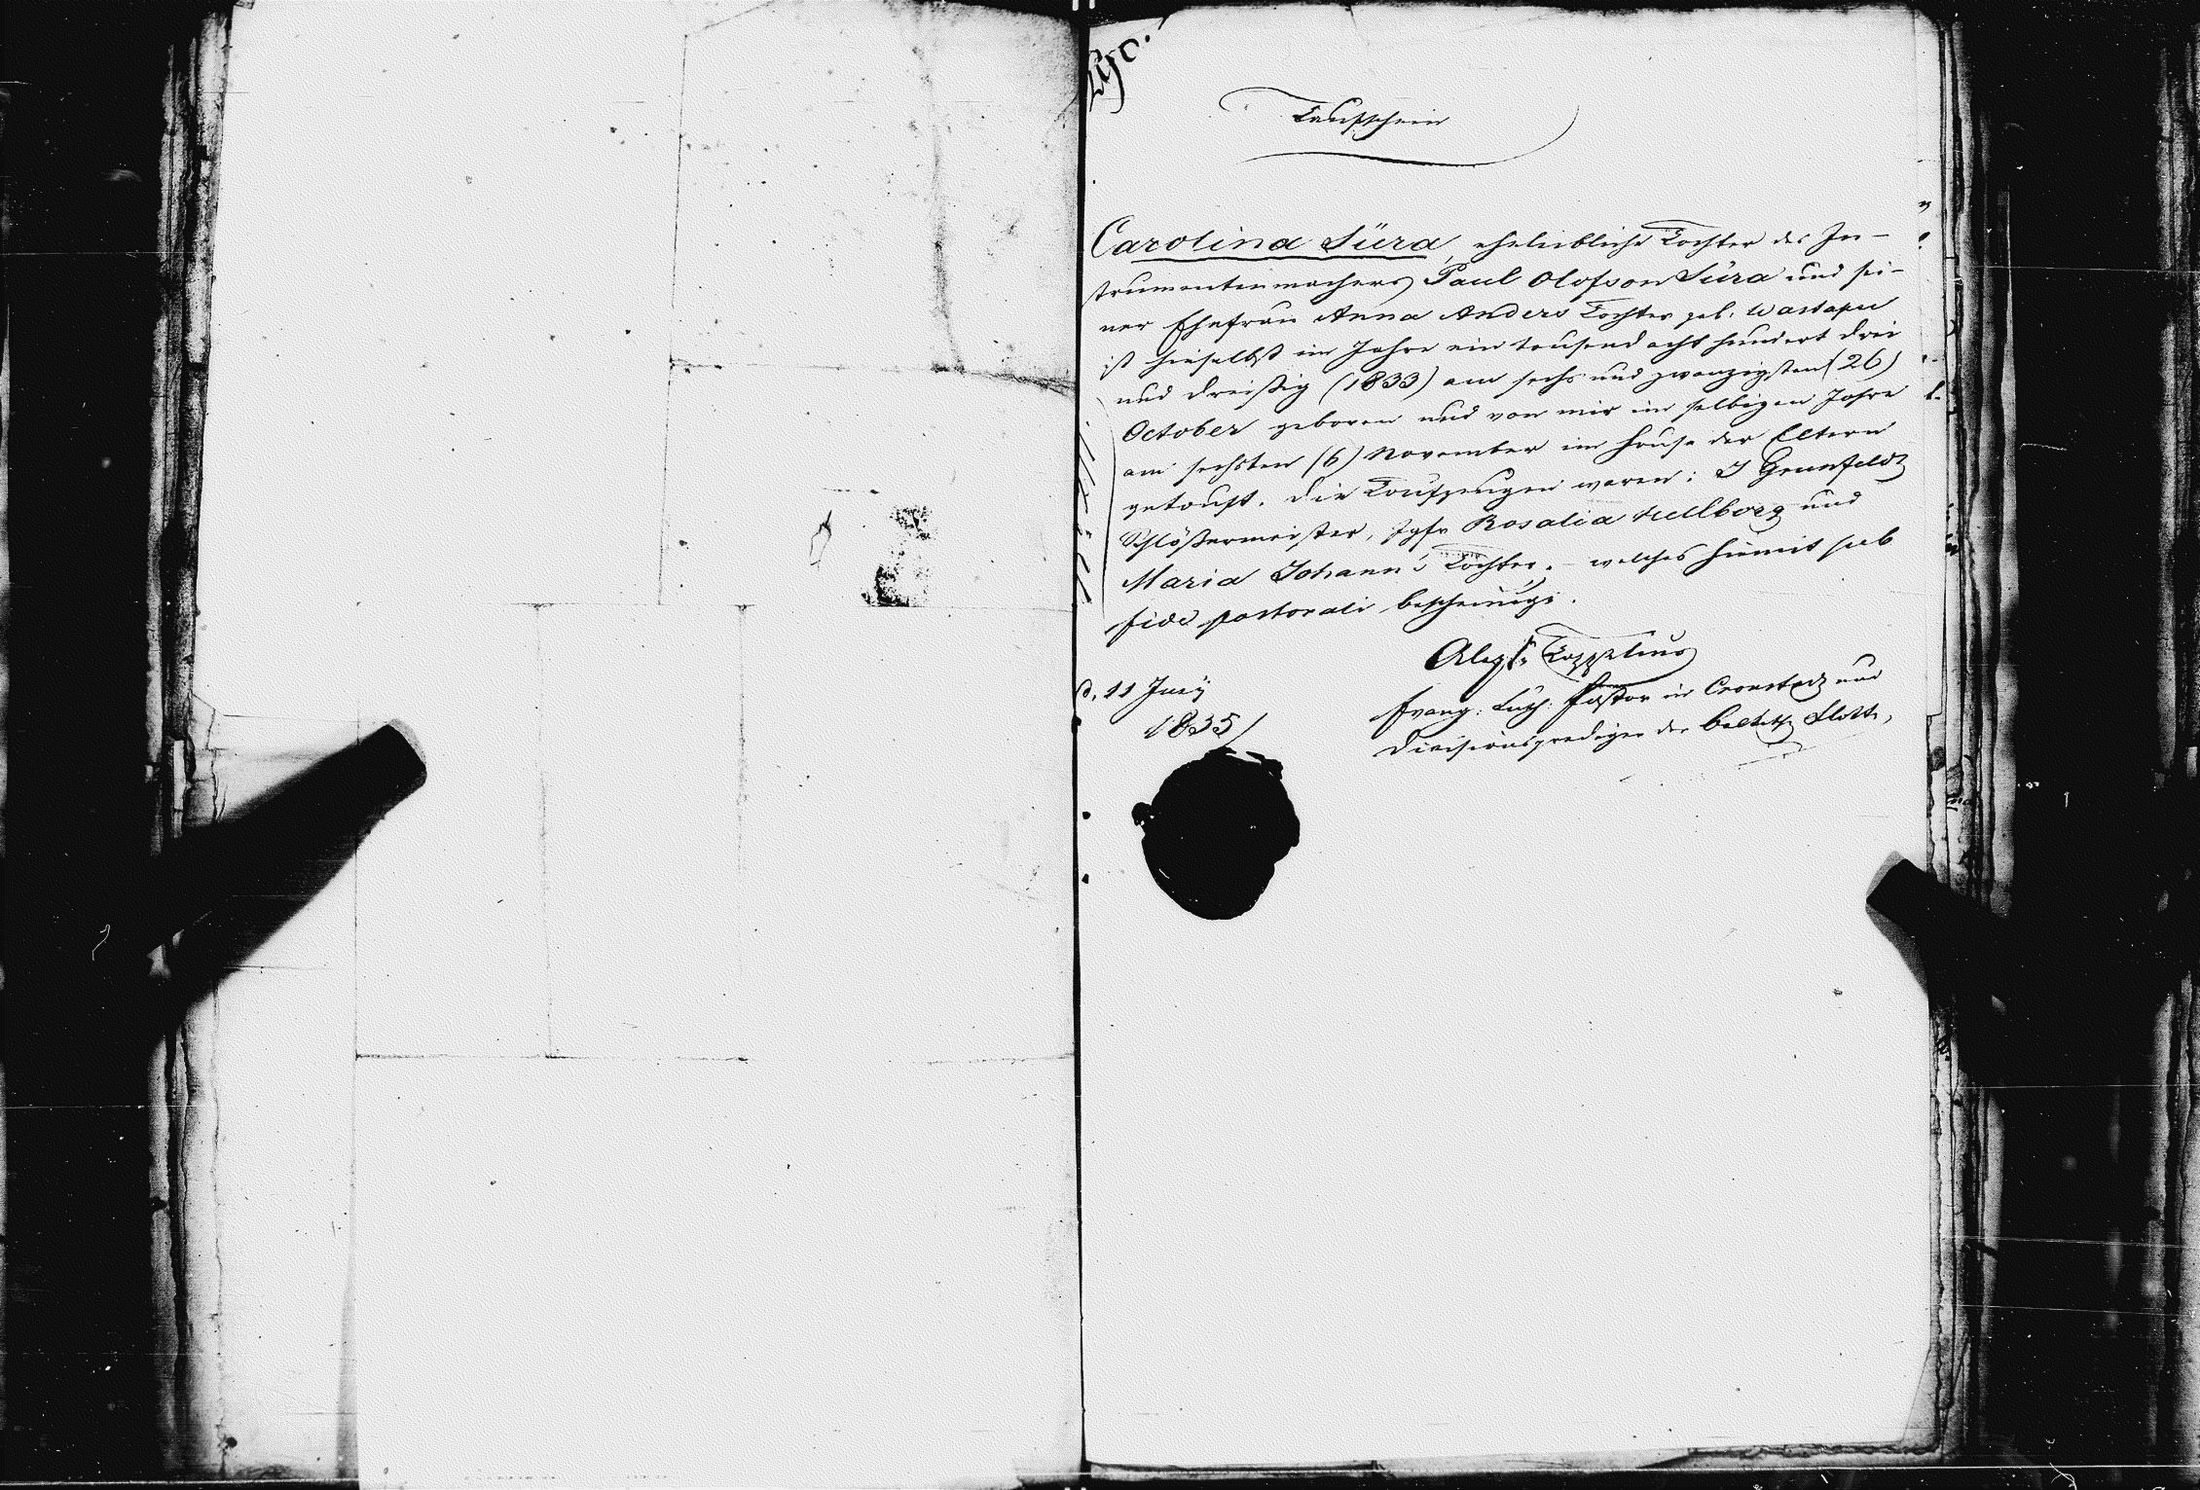 290.
Taufschein
Carolina Süra, eheleibliche Tochter des In-
strumentenmachers Paul Olofson Süra und sei-
ner Ehefrau Anna Anders Tochter geb. Wartapu
ist hieselbst im Jahre ein tausend acht hundert drei
und dreißig (1833) am sechs und zwanzigsten (26)
October geboren und von mir im selbigen Jahre
am sechsten (6) November im Hause der Eltern
getauft. Die Taufzeugen waren: J Grunfeldt
Schlößermeister, Jgfr Rosalia Hellborg und
Maria Johann's Tochter. – welches hiemit sub
fide pastorali bescheinigt.
d. 11 Juny
1835/
Evang: Luth: Pastor in Cronstadt und
Divisionsprediger der Flotte,